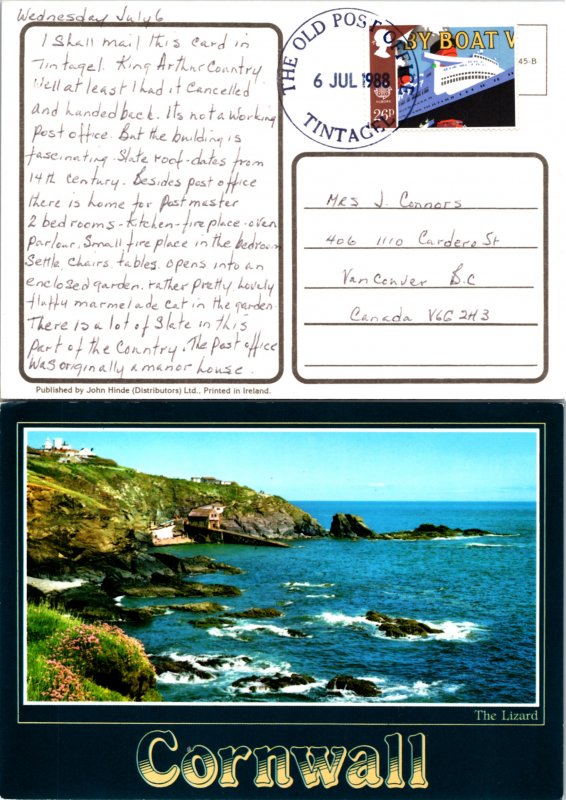 Wednesday July 6
I Shall mail this card in
Tintagel. King Arthur Country.
Well at least I had it Cancelled
and handed back. Its not a working
post office. But the building is
fascinating. Slate roof-dates from
14th Century. Besides post office
there is home for Postmaster
2 bedrooms - Kitchen-fireplace-oven
parlour, Small fireplace in the bedroom
Settle, Chairs, tables, opens into an
enclosed garden, rather pretty, Lovely
fluffy marmelade cat in the garden
There is a lot of Slate in this
part of the Country. The Post office
was originally a manor house.
THE OLD POST OFFICE
6 JUL 1988
TINTAGEL
26P
EUROPA
BY BOAT
45-B
Mrs J. Connors
406 1110 Cardero St
Vancouver B.C
Canada V6G 2H3
Published by John Hinde (Distributors) Ltd., Printed in Ireland.
The Lizard
Cornwall